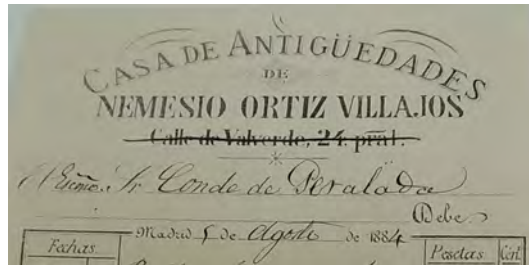 CASA DE ANTIGÜEDADES
DE
NEMESIO ORTIZ VILLAJOS
Calle de Valverde, 24. pral.
Exmo. Sr Conde de Peralada
Debe
Madrid 5 de Agosto de 1884
Fechas. Pesetas Cént.